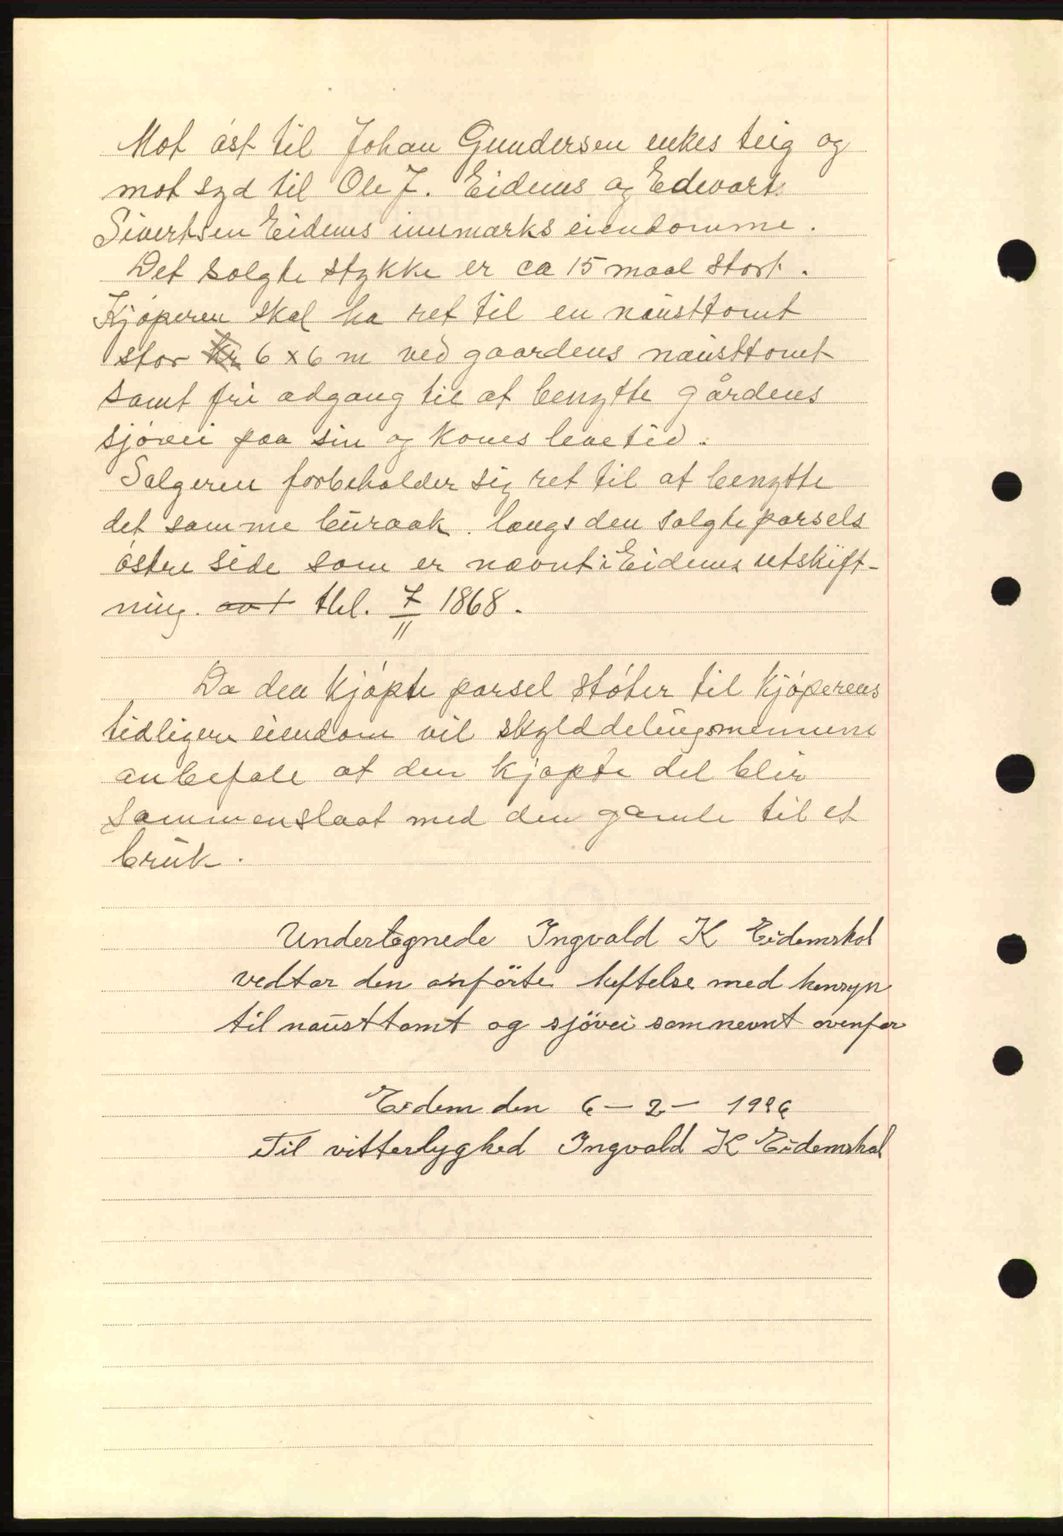 Mot øst til Johan Gundersen enkes teig og
mot syd til Ole J. Eidems og Edevart
Sivertsen Eidems innmarks eiendomme.
Det solgte stykke er ca 15 maal stort.
Kjøperen skal ha ret til en nausttomt
stor 6 x 6 m ved gaardens nausttomt
samt fri adgang til at benytte gårdens
sjøvei paa sin og kones levetid.
Selgeren forbeholder sig ret til at benytte
det samme buraak langs den solgte parsels
østre side som er nævnt i Eidems utskift-
ning. avt tbl. 7/11 1868.
Da den kjøpte parsel støter til kjøperens
tidligere eiendom vil skylddelingsmennene
anbefale at den kjøpte del blir
sammenslaat med den gamle til et
bruk.
Undertegnede Ingvald K Eidemshal
vedtar den anförte heftelse med hensyn
til nausttomt og sjövei som nevnt ovenfor
Eidem den 6 - 2 - 1936
Til vitterlyghed Ingvald K Eidemshal